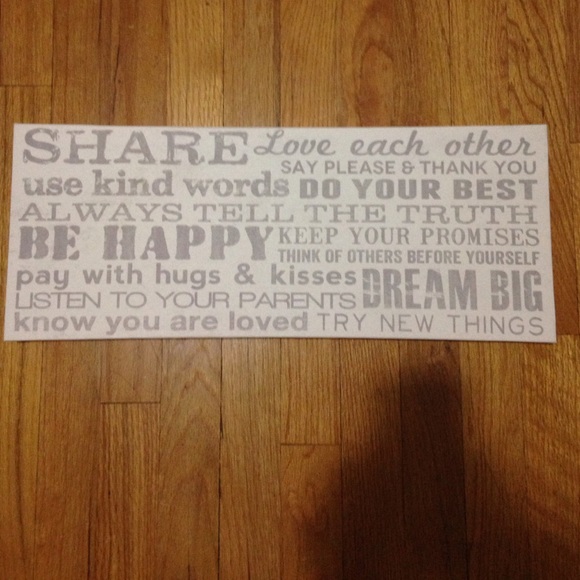 SHARE Love each other
SAY PLEASE & THANK YOU
use kind words DO YOUR BEST
ALWAYS TELL THE TRUTH
BE HAPPY KEEP YOUR PROMISES
THINK OF OTHERS BEFORE YOURSELF
pay with hugs & kisses DREAM BIG
LISTEN TO YOUR PARENTS
know you are loved TRY NEW THINGS